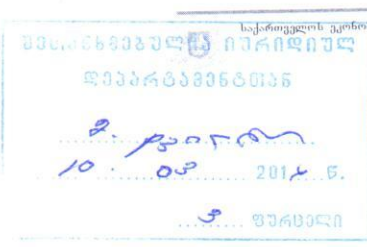 საქართველოს ეკონო
შეთანხმებულია იურიდიულ
დეპარტამენტთან
10 03 201 წ.
3 ფურცელი